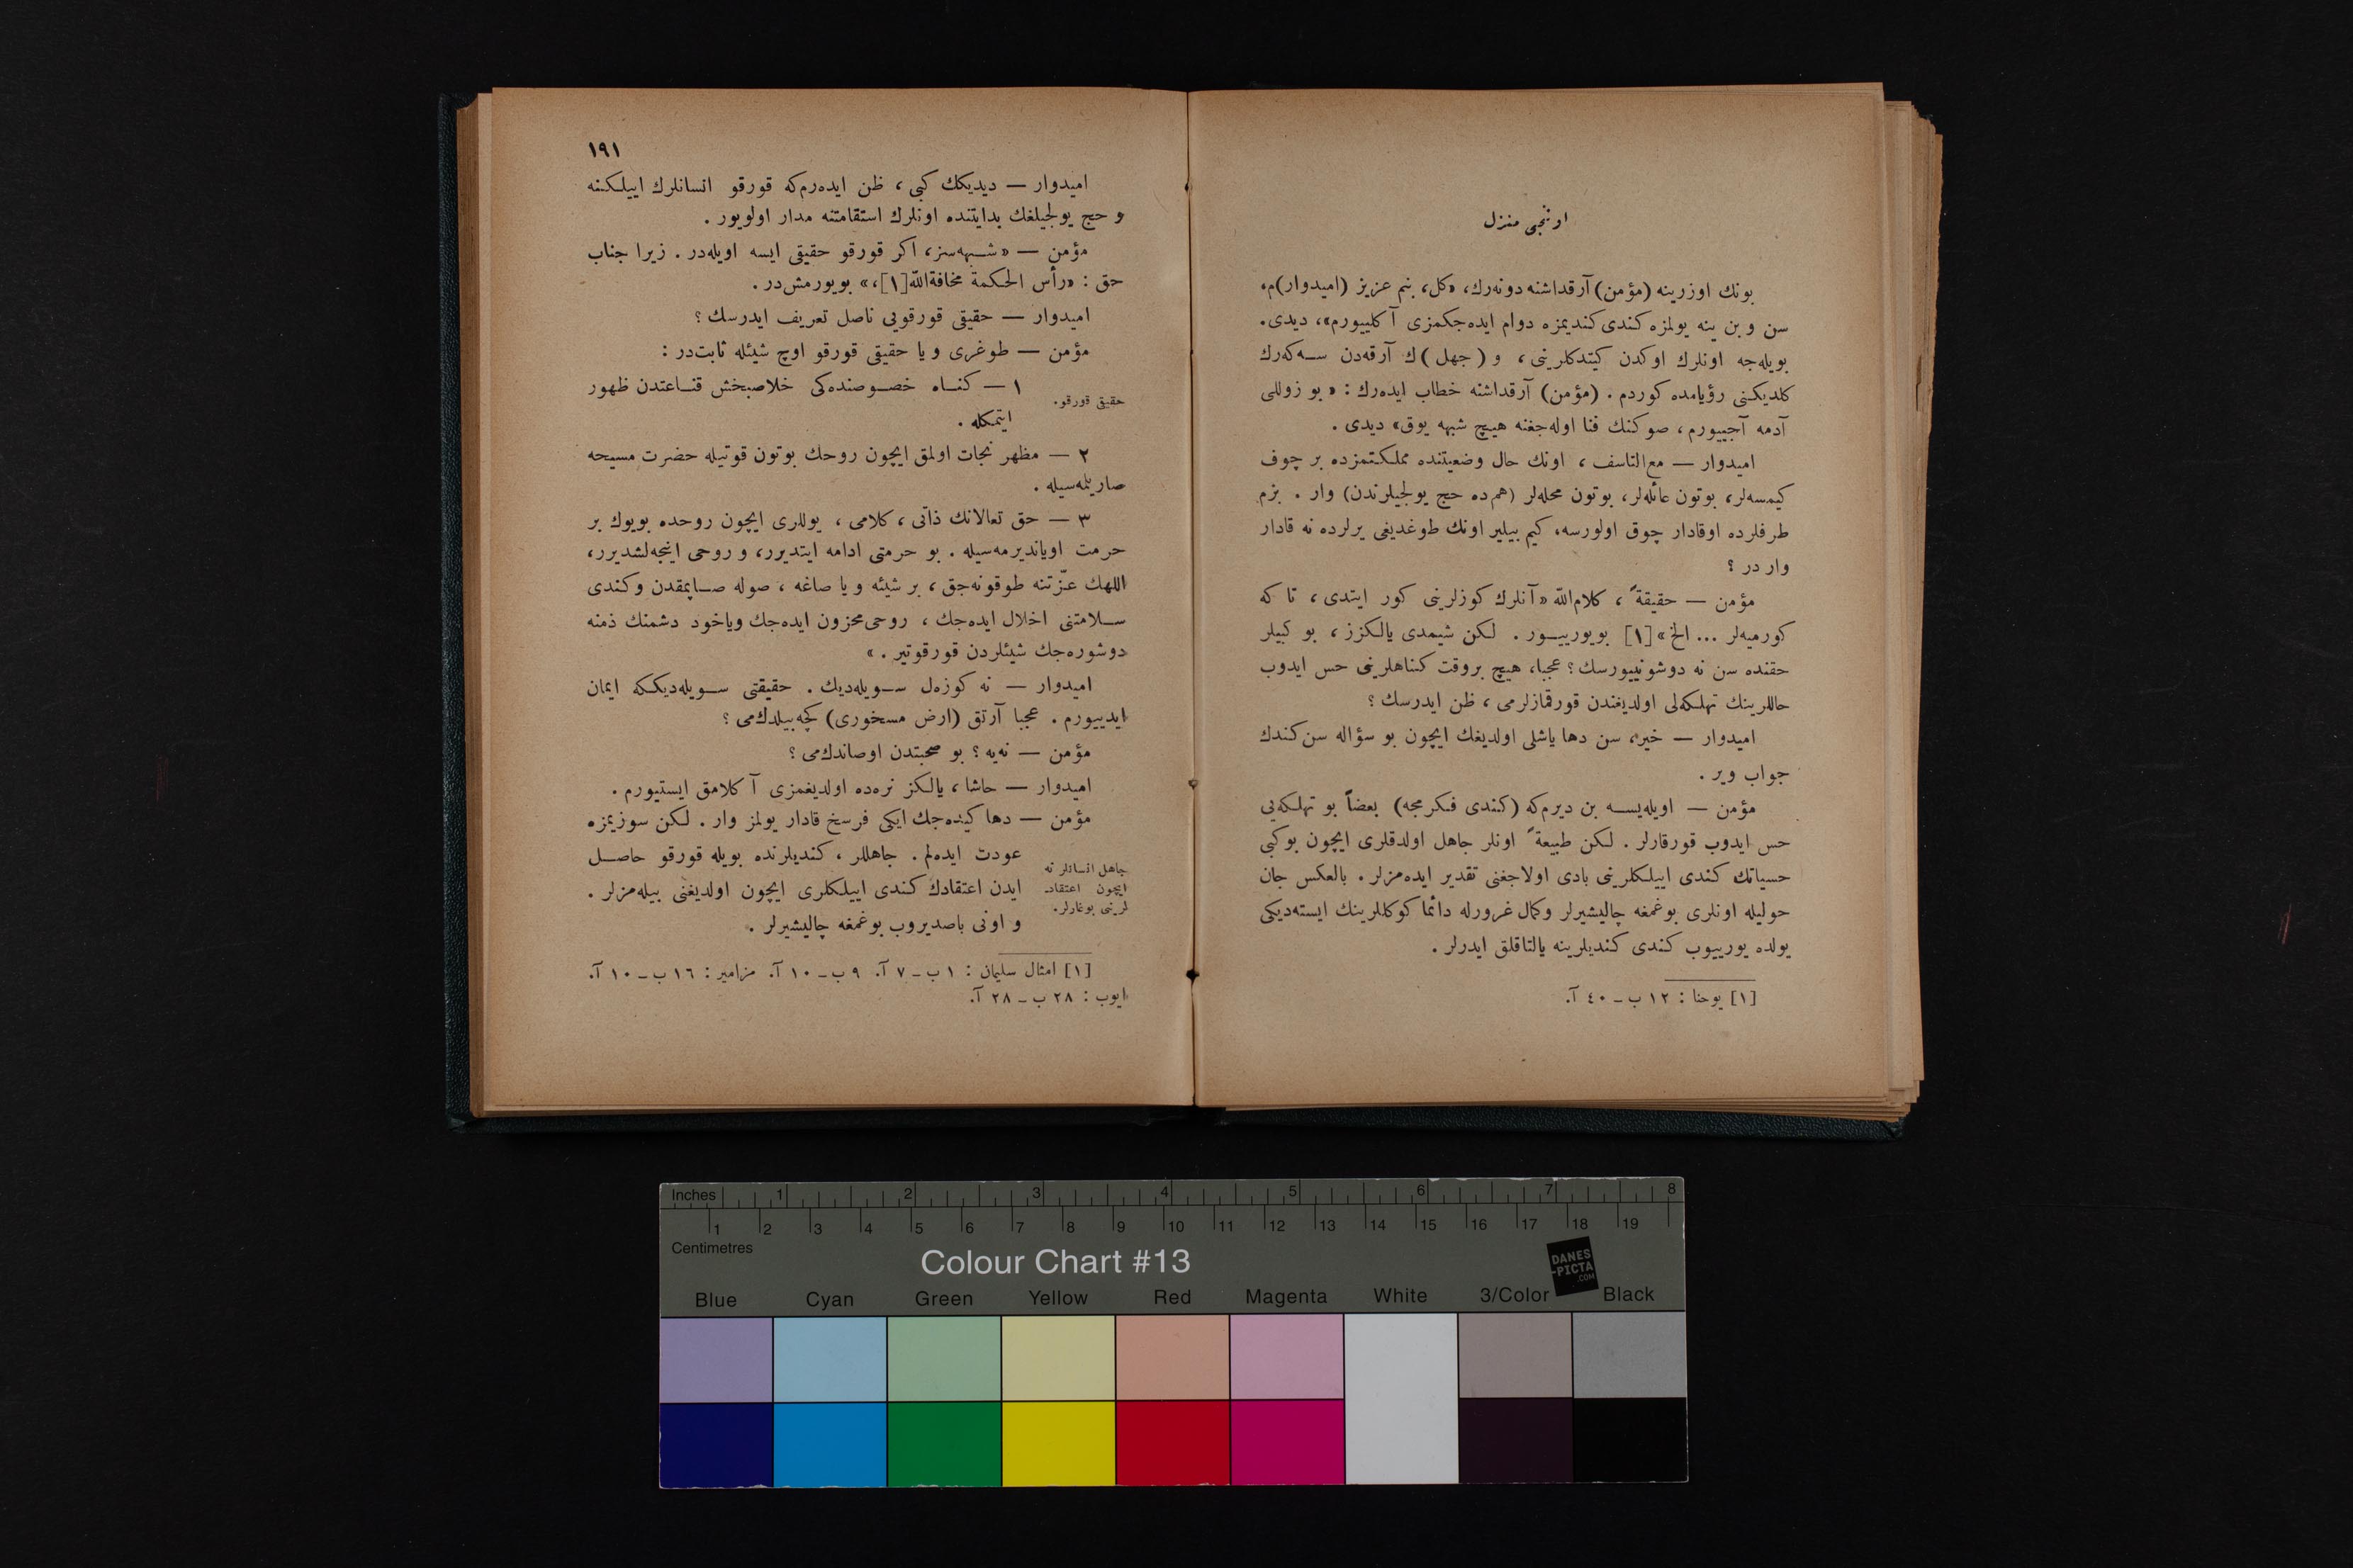 اونجى منزل
بونك اوزرينه (مؤمن) آرقداشنه دونه‌رك، «كل، بنم عزيز (اميدوار)م،
سن و بن ينه يولمزه كندى كنديمزه دوام ايده‌جكمزى آكلييورم»، ديدى.
بويله‌جه اونلرك اوكدن كيتدكلرينى، و (جهل)ك آرقه‌دن سه‌كه‌رك
كلديكنى رؤيامده كوردم. (مؤمن) آرقداشنه خطاب ايده‌رك: «بو زوللى
آدمه آجييورم، صوكنك فنا اوله‌جغنه هيچ شبهه يوق» ديدى.
اميدوار — مع‌التاسف، اونك حال وضعيتنده مملكتمزده بر چوق
كيمسه‌لر، بوتون عائله‌لر، بوتون محله‌لر (هم‌ده حج يولجيلرندن) وار. بزم
طرفلرده اوقادار چوق اولورسه، كيم بيلير اونك طوغديغى يرلرده نه قادار
وار در؟
مؤمن — حقيقةً، كلام‌الله «آنلرك كوزلرينى كور ايتدى، تا كه
كورميه‌لر ... الخ» [١] بويورييور. لكن شيمدى يالكزز، بو كبيلر
حقنده سن نه دوشونييورسك؟ عجبا، هيچ بروقت كناهلرينى حس ايدوب
حاللرينك تهلكه‌لى اولديغندن قورقمازلرمى، ظن ايدرسك؟
اميدوار — خير، سن دها ياشلى اولديغك ايچون بو سؤاله سن كندك
جواب وير.
مؤمن — اويله‌يسه بن ديرم‌كه (كندى فكرمجه) بعضاً بو تهلكه‌يى
حس ايدوب قورقارلر. لكن طبيعةً اونلر جاهل اولدقلرى ايچون بوكبى
حسياتك كندى اييلكلرينى بادى اولاجغنى تقدير ايده‌مزلر. بالعكس جان
حوليله اونلرى بوغمغه چاليشيرلر وكمال غرورله دائما كوكللرينك ايسته‌ديكى
يولده يورييوب كندى كنديلرينه يالتاقلق ايدرلر.
[١] يوحنا: ١٢ ب ـ ٤٠ آ.
١٩١
اميدوار — ديديكك كبى، ظن ايده‌رم‌كه قورقو انسانلرك اييلكنه
و حج يولجيلغك بدايتنده اونلرك استقامتنه مدار اولويور.
مؤمن — «شبهه‌سز، اكر قورقو حقيقى ايسه اويله‌در. زيرا جناب
حق: «رأس الحكمة مخافةالله[١]،» بويورمش‌در.
اميدوار — حقيقى قورقويى ناصل تعريف ايدرسك؟
مؤمن — طوغرى و يا حقيقى قورقو اوچ شيئله ثابت‌در:
١ — كناه خصوصنده‌كى خلاصبخش قناعتدن ظهور
حقيقى قورقو.
ايتمكله.
٢ — مظهر نجات اولمق ايچون روحك بوتون قوتيله حضرت مسيحه
صاريلمه‌سيله.
٣ — حق تعالانك ذاتى، كلامى، يوللرى ايچون روحده بويوك بر
حرمت اوياندیرمه‌سيله. بو حرمتى ادامه ايتديرر، و روحى اينجه‌لشديرر،
اللهك عزّتنه طوقونه‌جق، بر شيئه و يا صاغه، صوله صاپمقدن وكندى
سلامتنى اخلال ايده‌جك، روحى محزون ايده‌جك وياخود دشمنك ذمنه
دوشوره‌جك شيئلردن قورقوتير.»
اميدوار — نه كوزه‌ل سويله‌ديك. حقيقتى سويله‌ديككه ايمان
ايدييورم. عجبا آرتق (ارض مسخورى) كچه‌بيلدك‌مى؟
مؤمن — نه‌يه؟ بو صحبتدن اوصاندك‌مى؟
اميدوار — حاشا، يالكز نره‌ده اولديغمزى آكلامق ايستيورم.
مؤمن — دها كيده‌جك ايكى فرسخ قادار يولمز وار. لكن سوزيمزه
عودت ايده‌لم. جاهللر، كنديلرنده بويله قورقو حاصل
ايدن اعتقادك كندى اييلكلرى ايچون اولديغنى بيله‌مزلر.
و اونى باصديروب بوغمغه چاليشيرلر.
جاهل انسانلر نه
ايچون اعتقاد‌
لرينى بوغارلر.
[١] امثال سليمان: ١ ب ـ ٧ آ. ٩ ب ـ ١٠ آ. مزامير: ١٦ ب ـ ١٠ آ.
ايوب: ٢٨ ب ـ ٢٨ آ.
Inches 1 2 3 4 5 6 7 8
1 2 3 4 5 6 7 8 9 10 11 12 13 14 15 16 17 18 19
Centimetres
Colour Chart #13
DANES
-PICTA
.COM
Blue Cyan Green Yellow Red Magenta White 3/Color Black